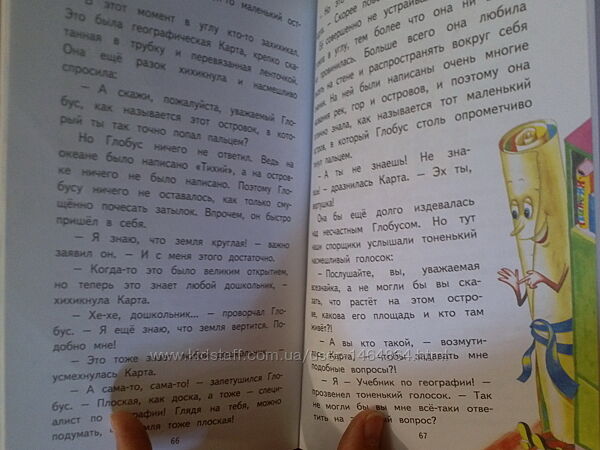 то маленький ост-
В этот момент в углу кто-то захихикал.
Это была географическая Карта, крепко ска-
танная в трубку и перевязанная ленточкой.
Она ещё разок хихикнула и насмешливо
спросила:
— А скажи, пожалуйста, уважаемый Гло-
бус, как называется этот островок, в кото-
рый ты так точно попал пальцем?
Но Глобус ничего не ответил. Ведь на
океане было написано «Тихий», а на остров-
ке ничего не было написано. Поэтому Гло-
бусу ничего не оставалось, как только сму-
щённо почесать затылок. Впрочем, он быстро
пришёл в себя.
— Я знаю, что земля круглая! — важно
заявил он. — И с меня этого достаточно.
— Когда-то это было великим открытием,
но теперь это знает любой дошкольник, —
хихикнула Карта.
— Хе-хе, дошкольник... — проворчал Гло-
бус. — Я ещё знаю, что земля вертится. По-
добно мне!
— Это тоже
усмехнулась Карта.
— А сама-то, сама-то! — запетушился Гло-
бус. — Плоская, как доска, а тоже — специ-
алист по географии! Глядя на тебя, можно
подумать, земля тоже плоская!
66
— Скорее
совершенно не устраивало
в углу, тем более что она ни в
провинилась. Больше всего она любила
на стене и распространять вокруг себя
На ней были написаны очень многие
рек, гор и островов, и поэтому она
знала, как называется тот маленький
в который Глобус столь опрометчиво
пальцем.
— А ты не знаешь! Не зна-
— дразнилась Карта. — Эх ты,
Она бы ещё долго издевалась
над несчастным Глобусом. Но тут
наши спорщики услышали тоненький
насмешливый голосок:
— Послушайте, вы, уважаемая
всезнайка, а не могли бы вы ска-
зать, что растёт на этом остро-
ве, какова его площадь и кто там
живёт?!
— А вы кто такой, — возмути-
лась Карта, задавать мне
подобные вопросы?!
— Я — Учебник по географии! —
прозвенел тоненький голосок. — Так
не могли бы вы мне всё-таки отве-
тить на вопрос?
67
www.kidstaff.com.ua